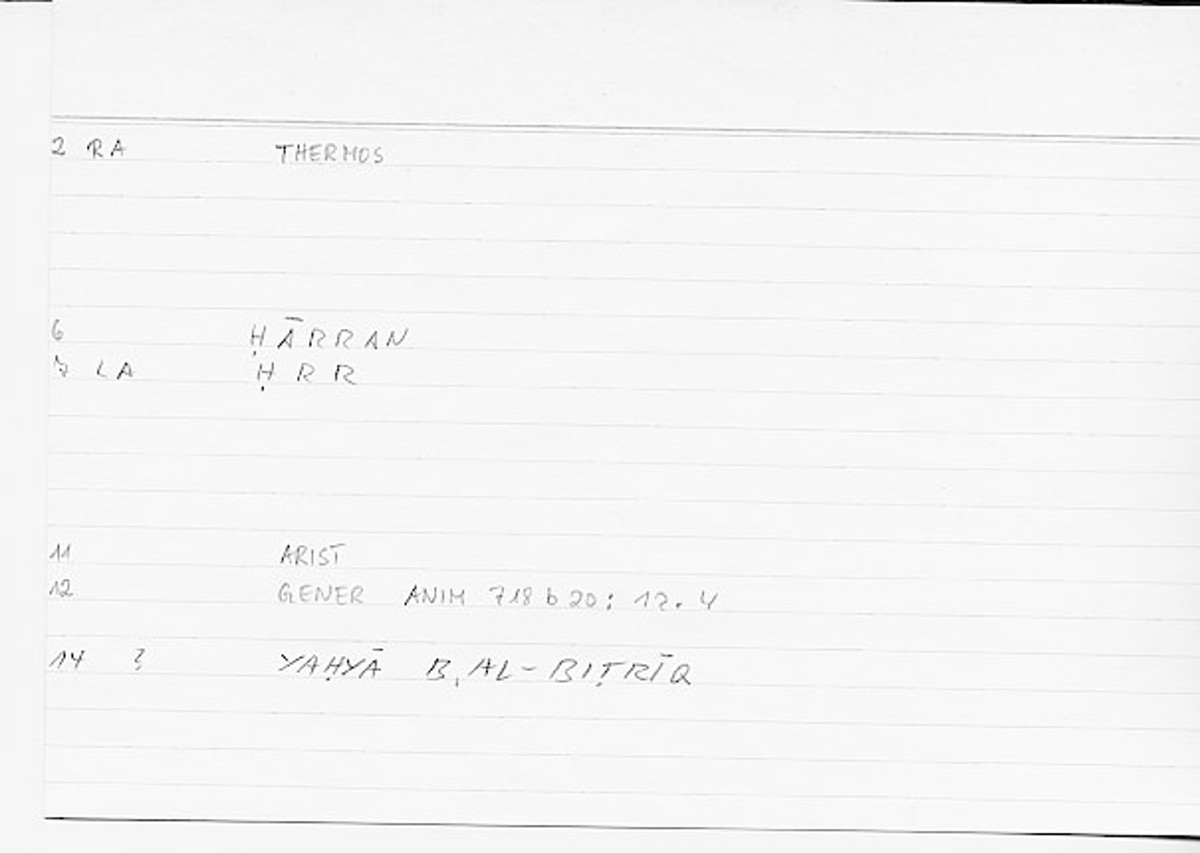 2 RA THERMOS
6 ḤĀRRAN
7 LA ḤRR
11 ARIST
12 GENER ANIM 718 b 20: 12. 4
14 ? YAḤYĀ B. AL-BIṬRĪQ